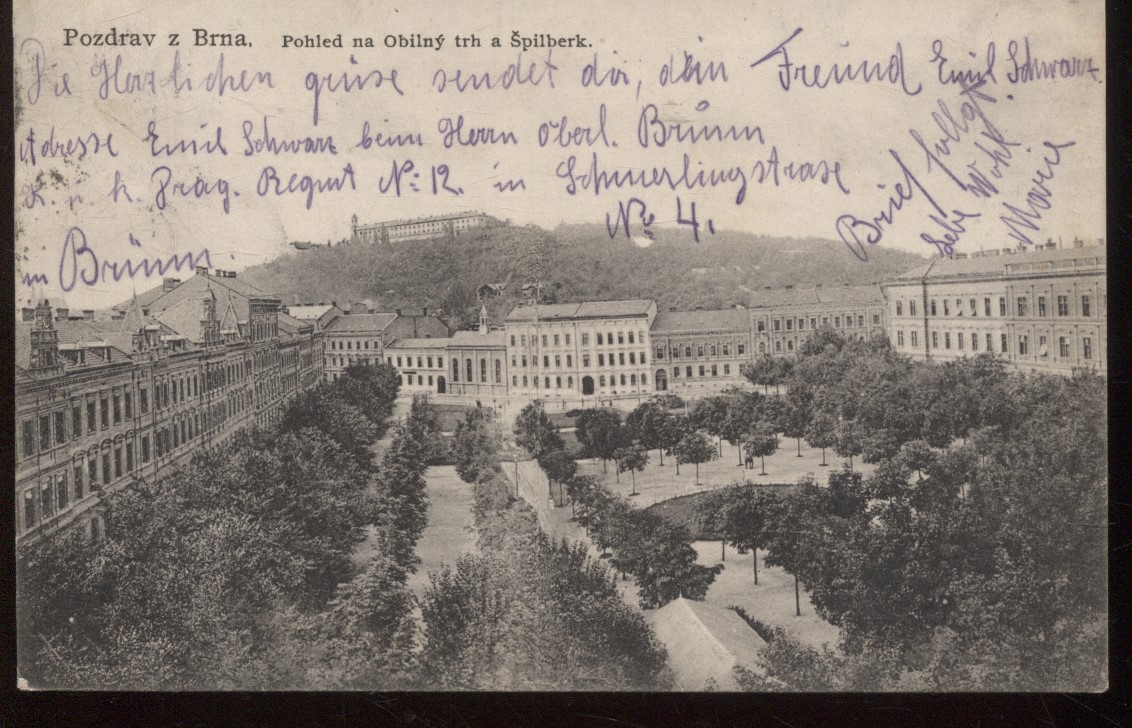 Pozdrav z Brna. Pohled na Obilný trh a Špilberk.
Die Herzlichen grüse sendet dir, dein Freund Emil Schwarz.
Adresse Emil Schwarz beim Herrn Oberl. Brünn
K. u. k. Drag. Regmt No: 12. in Schmerlingstrase
No 4.
in Brünn.
Brief follgt
Lebe Wohl
Marie